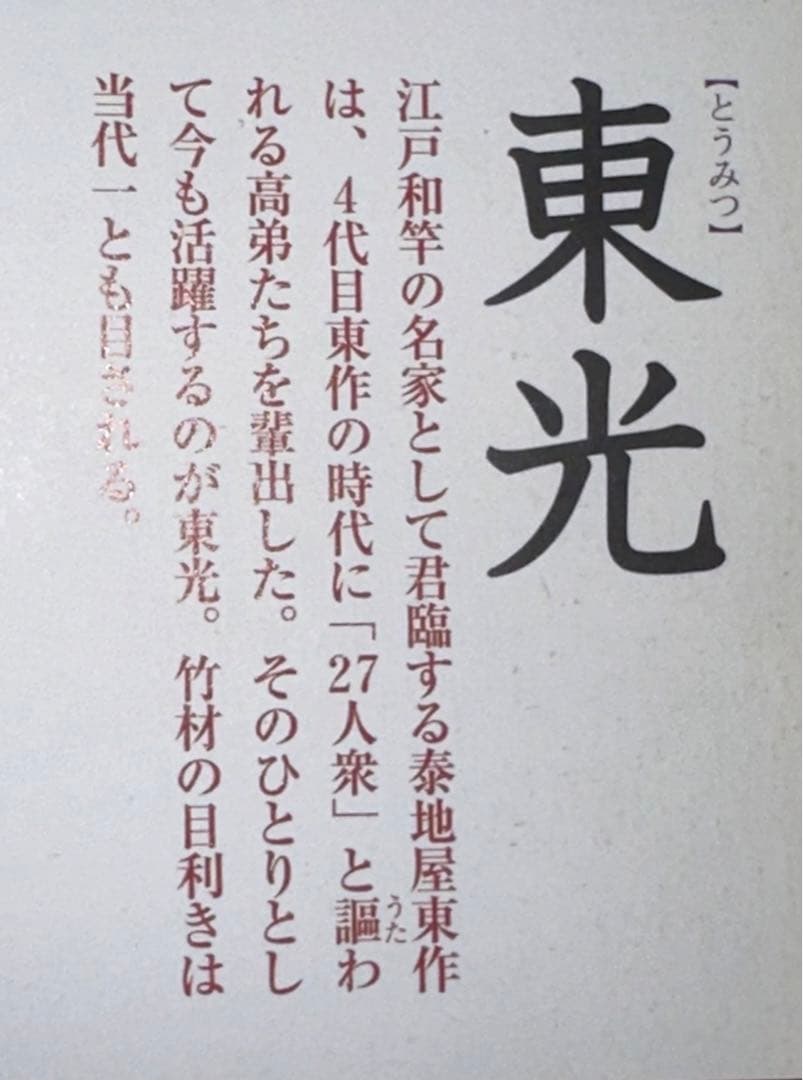 【とうみつ】
東光
江戸和竿の名家として君臨する泰地屋東作
は、4代目東作の時代に「27人衆」と謳わ
うた
れる高弟たちを輩出した。そのひとりとし
て今も活躍するのが東光。竹材の目利きは
当代一とも目される。